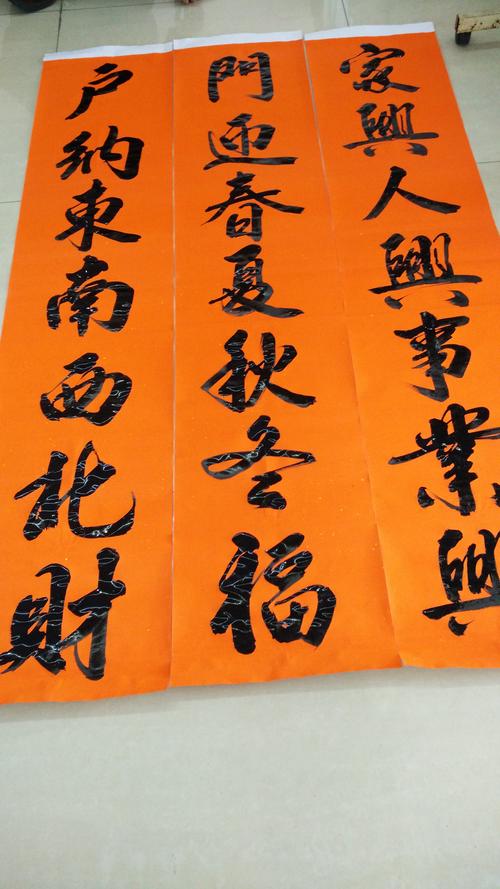 家興人興事業興
門迎春夏秋冬福
户納東南西北財